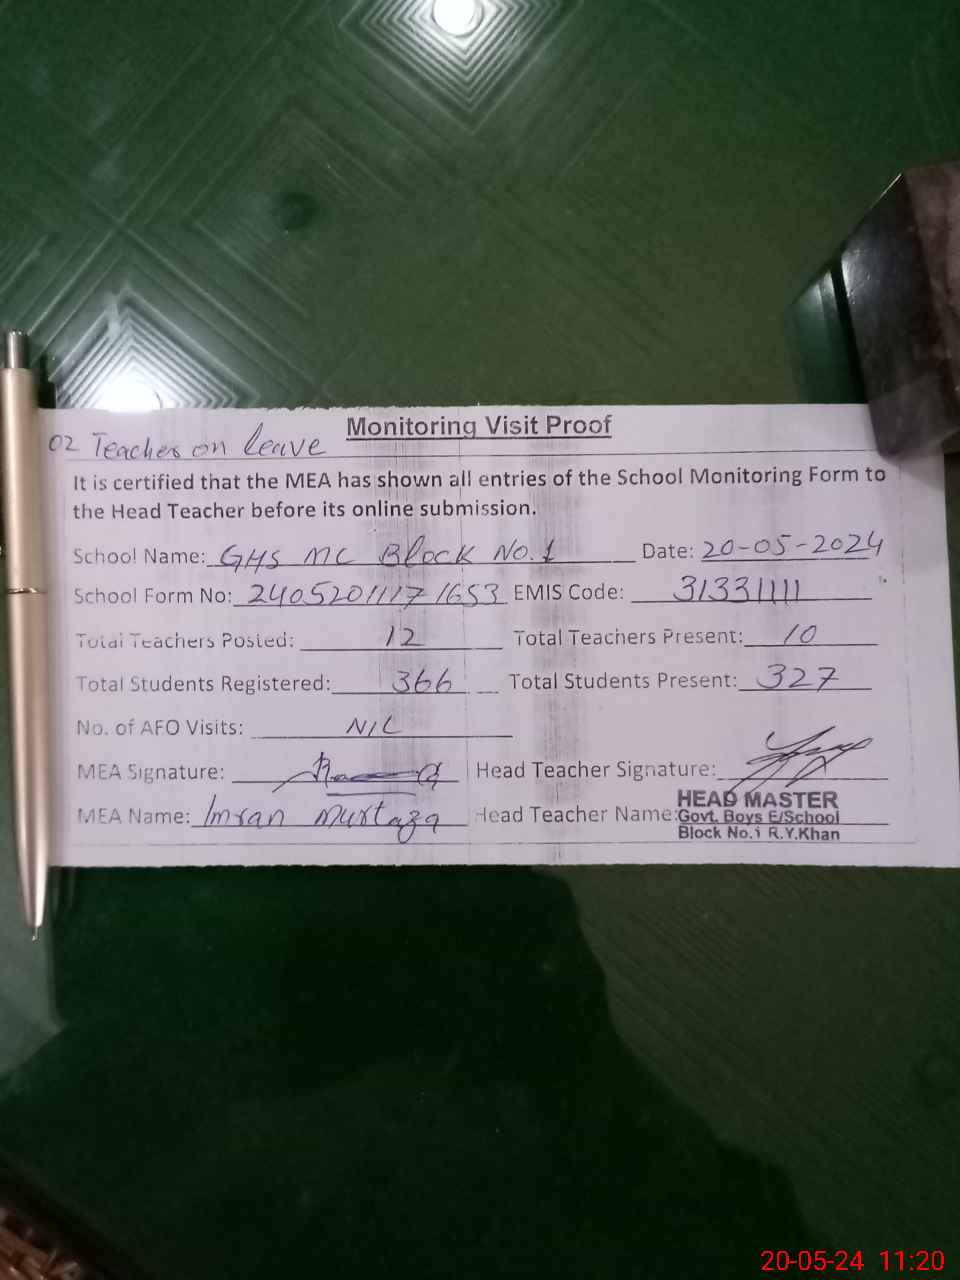 Monitoring Visit Proof
02 Teacher on leave
It is certified that the MEA has shown all entries of the School Monitoring Form to
the Head Teacher before its online submission.
School Name: GHS MC Block No. 1 Date: 20-05-2024
School Form No: 24052011171653 EMIS Code: 31331111
Total Teachers Posted: 12 Total Teachers Present: 10
Total Students Registered: 366 Total Students Present: 327
No. of AFO Visits: NIL
MEA Signature: Head Teacher Signature:
MEA Name: Imran Murtaza Head Teacher Name:
HEAD MASTER
Govt. Boys E/School
Block No.1 R.Y.Khan
20-05-24 11:20